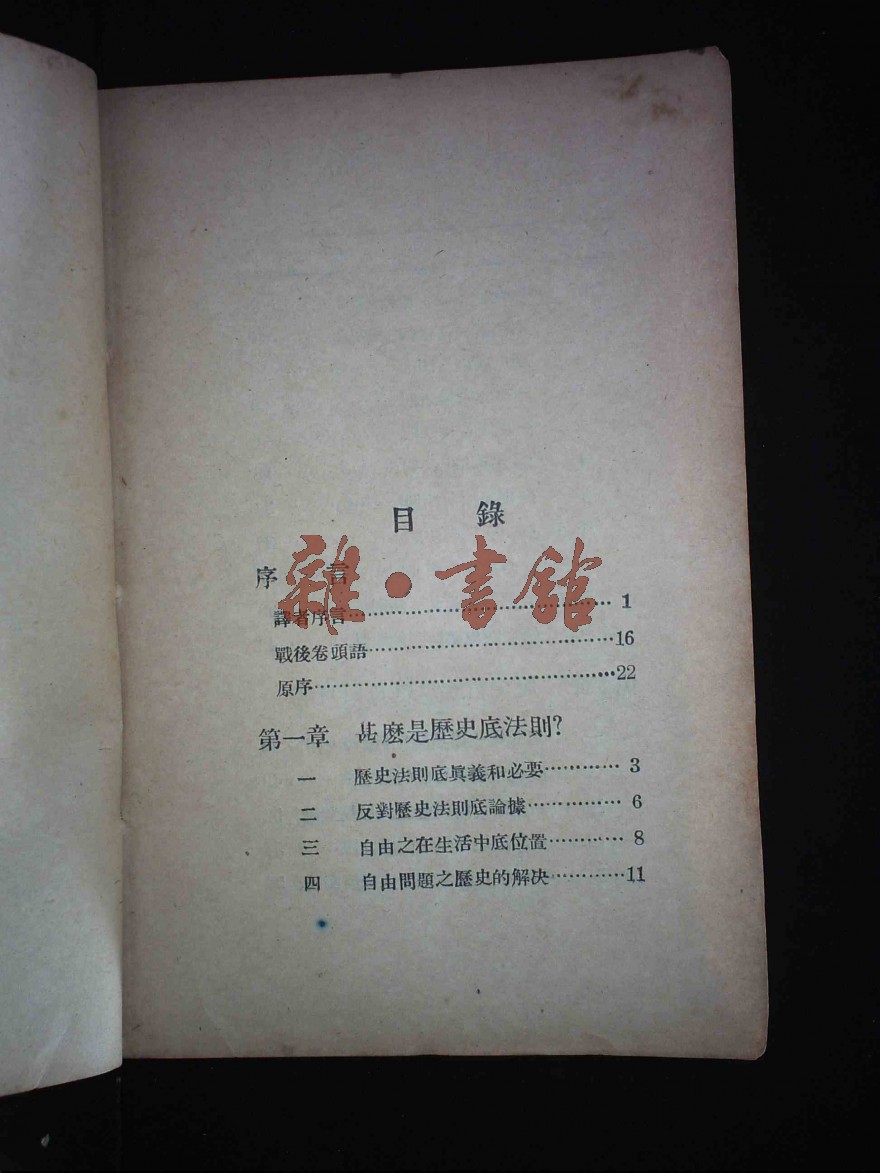 目 錄
序 言
譯者序言…………………………………… 1
戰後卷頭語……………………………………16
原序……………………………………………22
第一章 甚麽是歷史底法則?
一 歷史法則底眞義和必要………… 3
二 反對歷史法則底論據…………… 6
三 自由之在生活中底位置………… 8
四 自由問題之歷史的解决…………11
雜·書舘